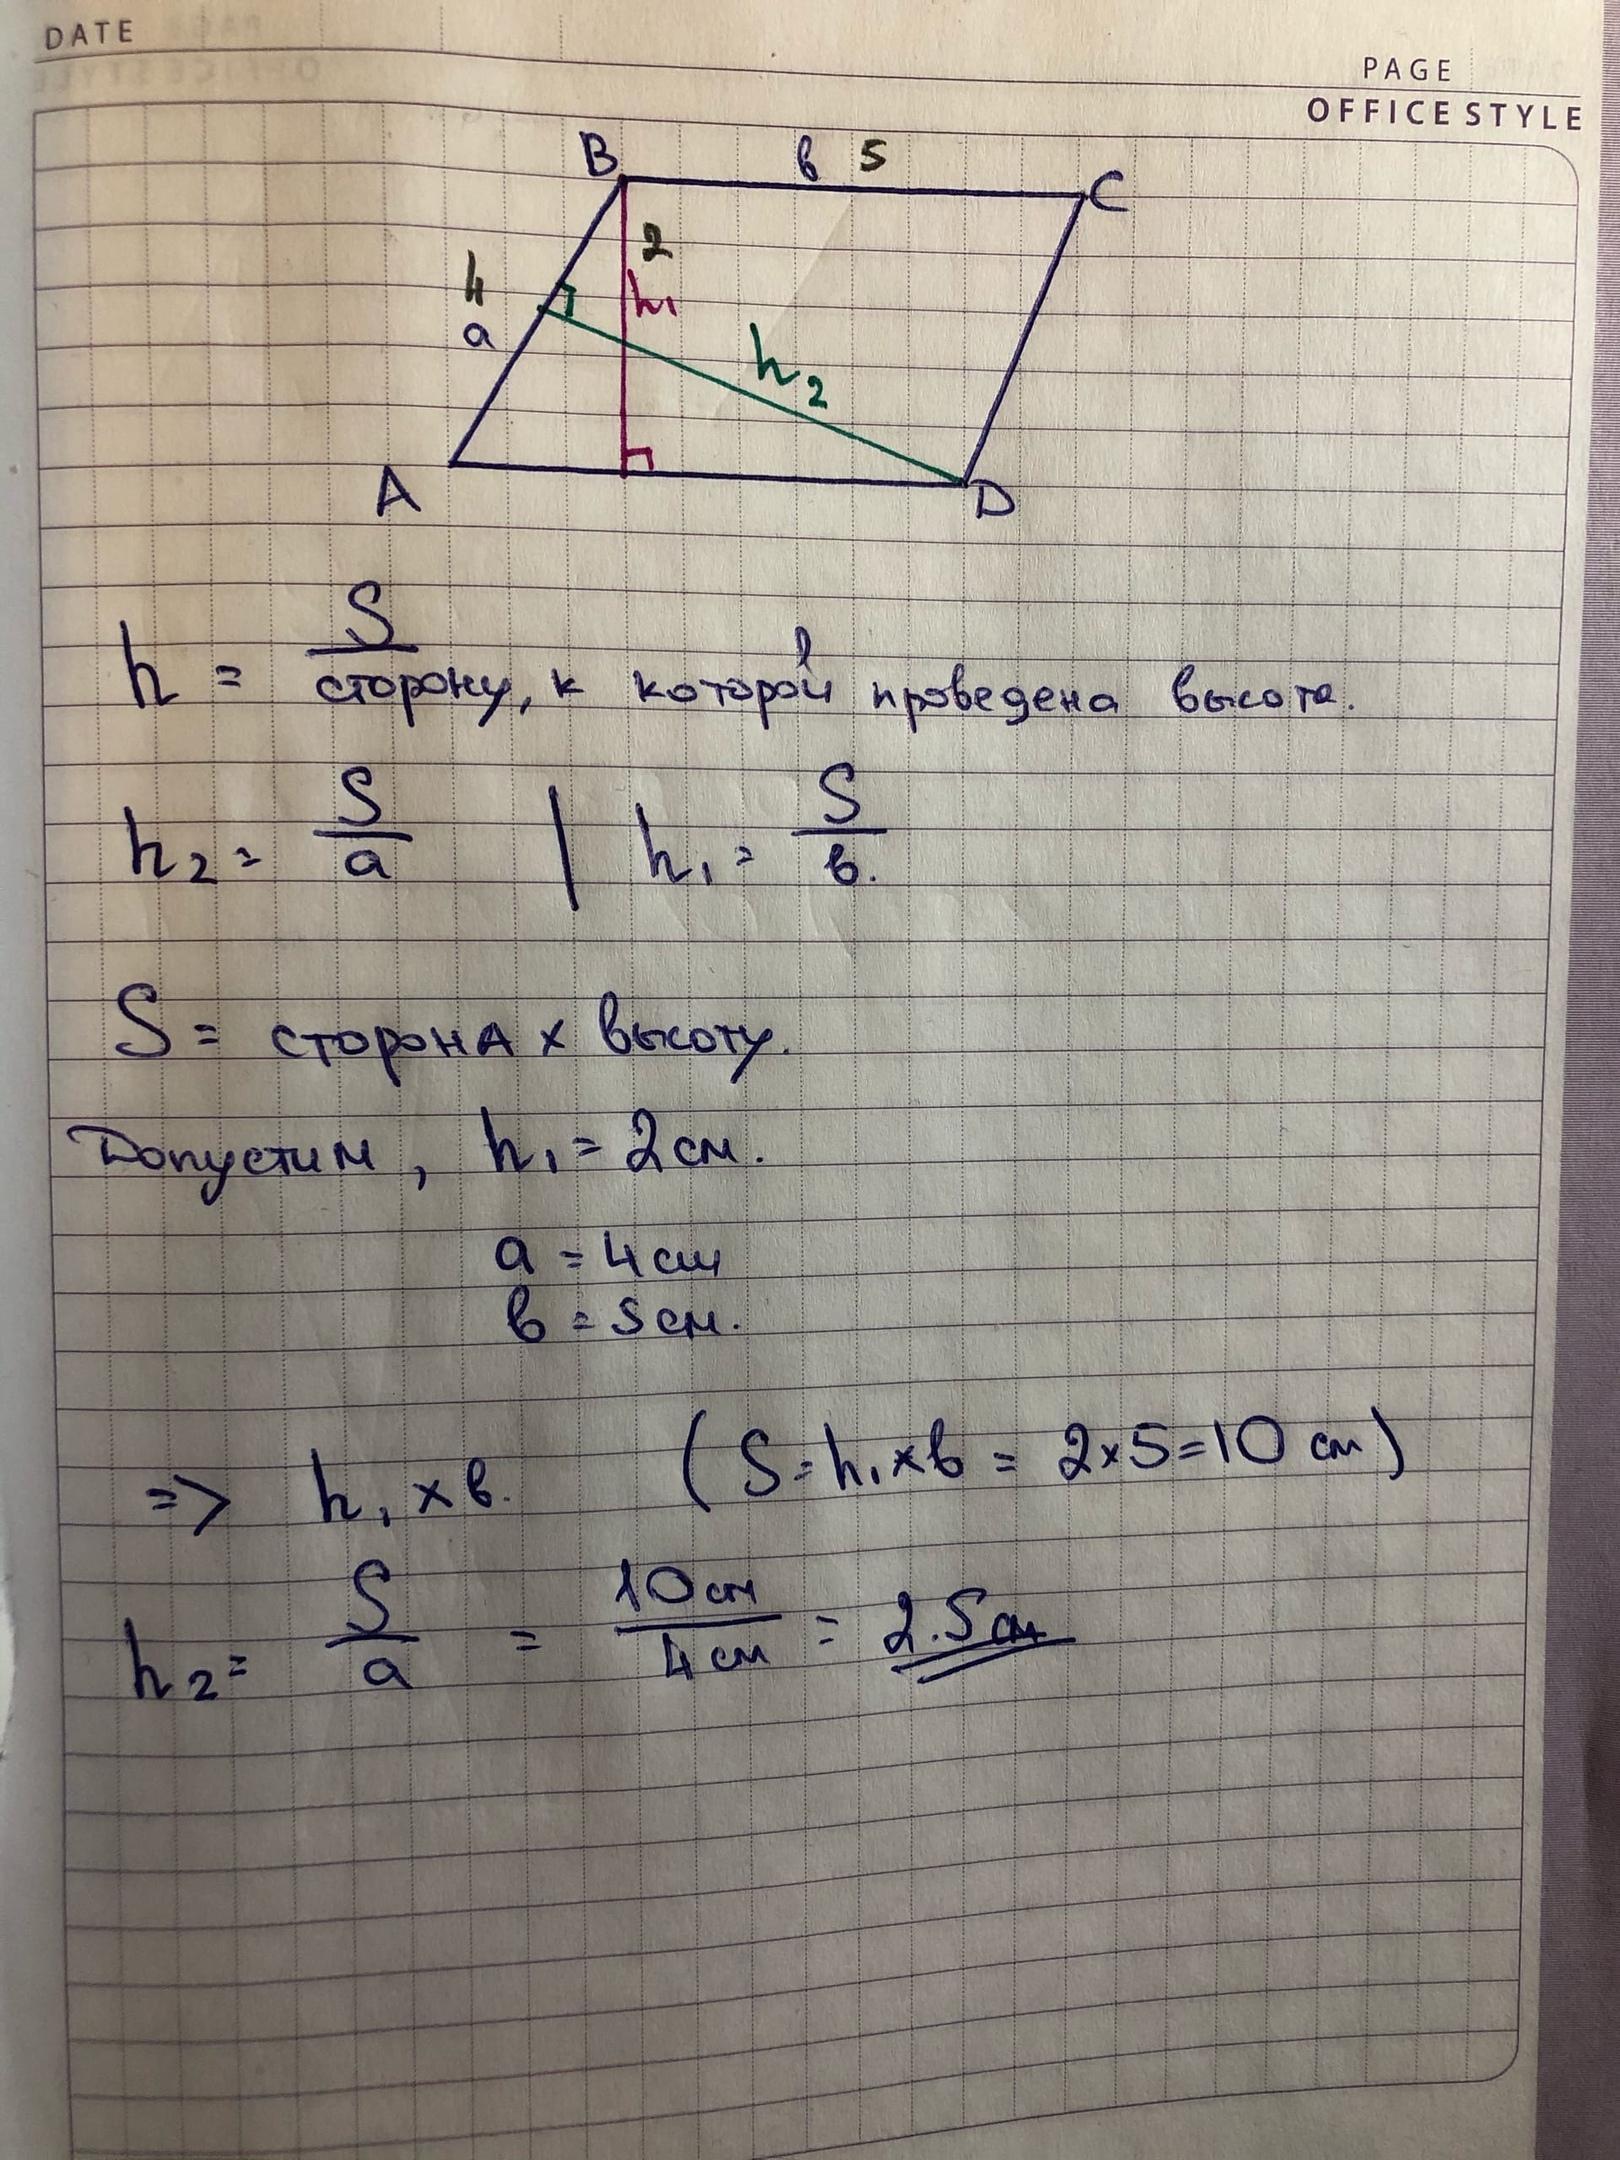 DATE
PAGE
OFFICE STYLE
B в 5 C
2
4
h₁
a
h₂
A D
h = S / сторону, к которой проведена высота.
h₂ = S / a | h₁ = S / в.
S = сторона х высоту.
Допустим, h₁ = 2 см.
a = 4 см
в = 5 см.
=> h₁ × в. (S = h₁ × в = 2 × 5 = 10 см)
h₂ = S / a = 10 см / 4 см = 2.5 см